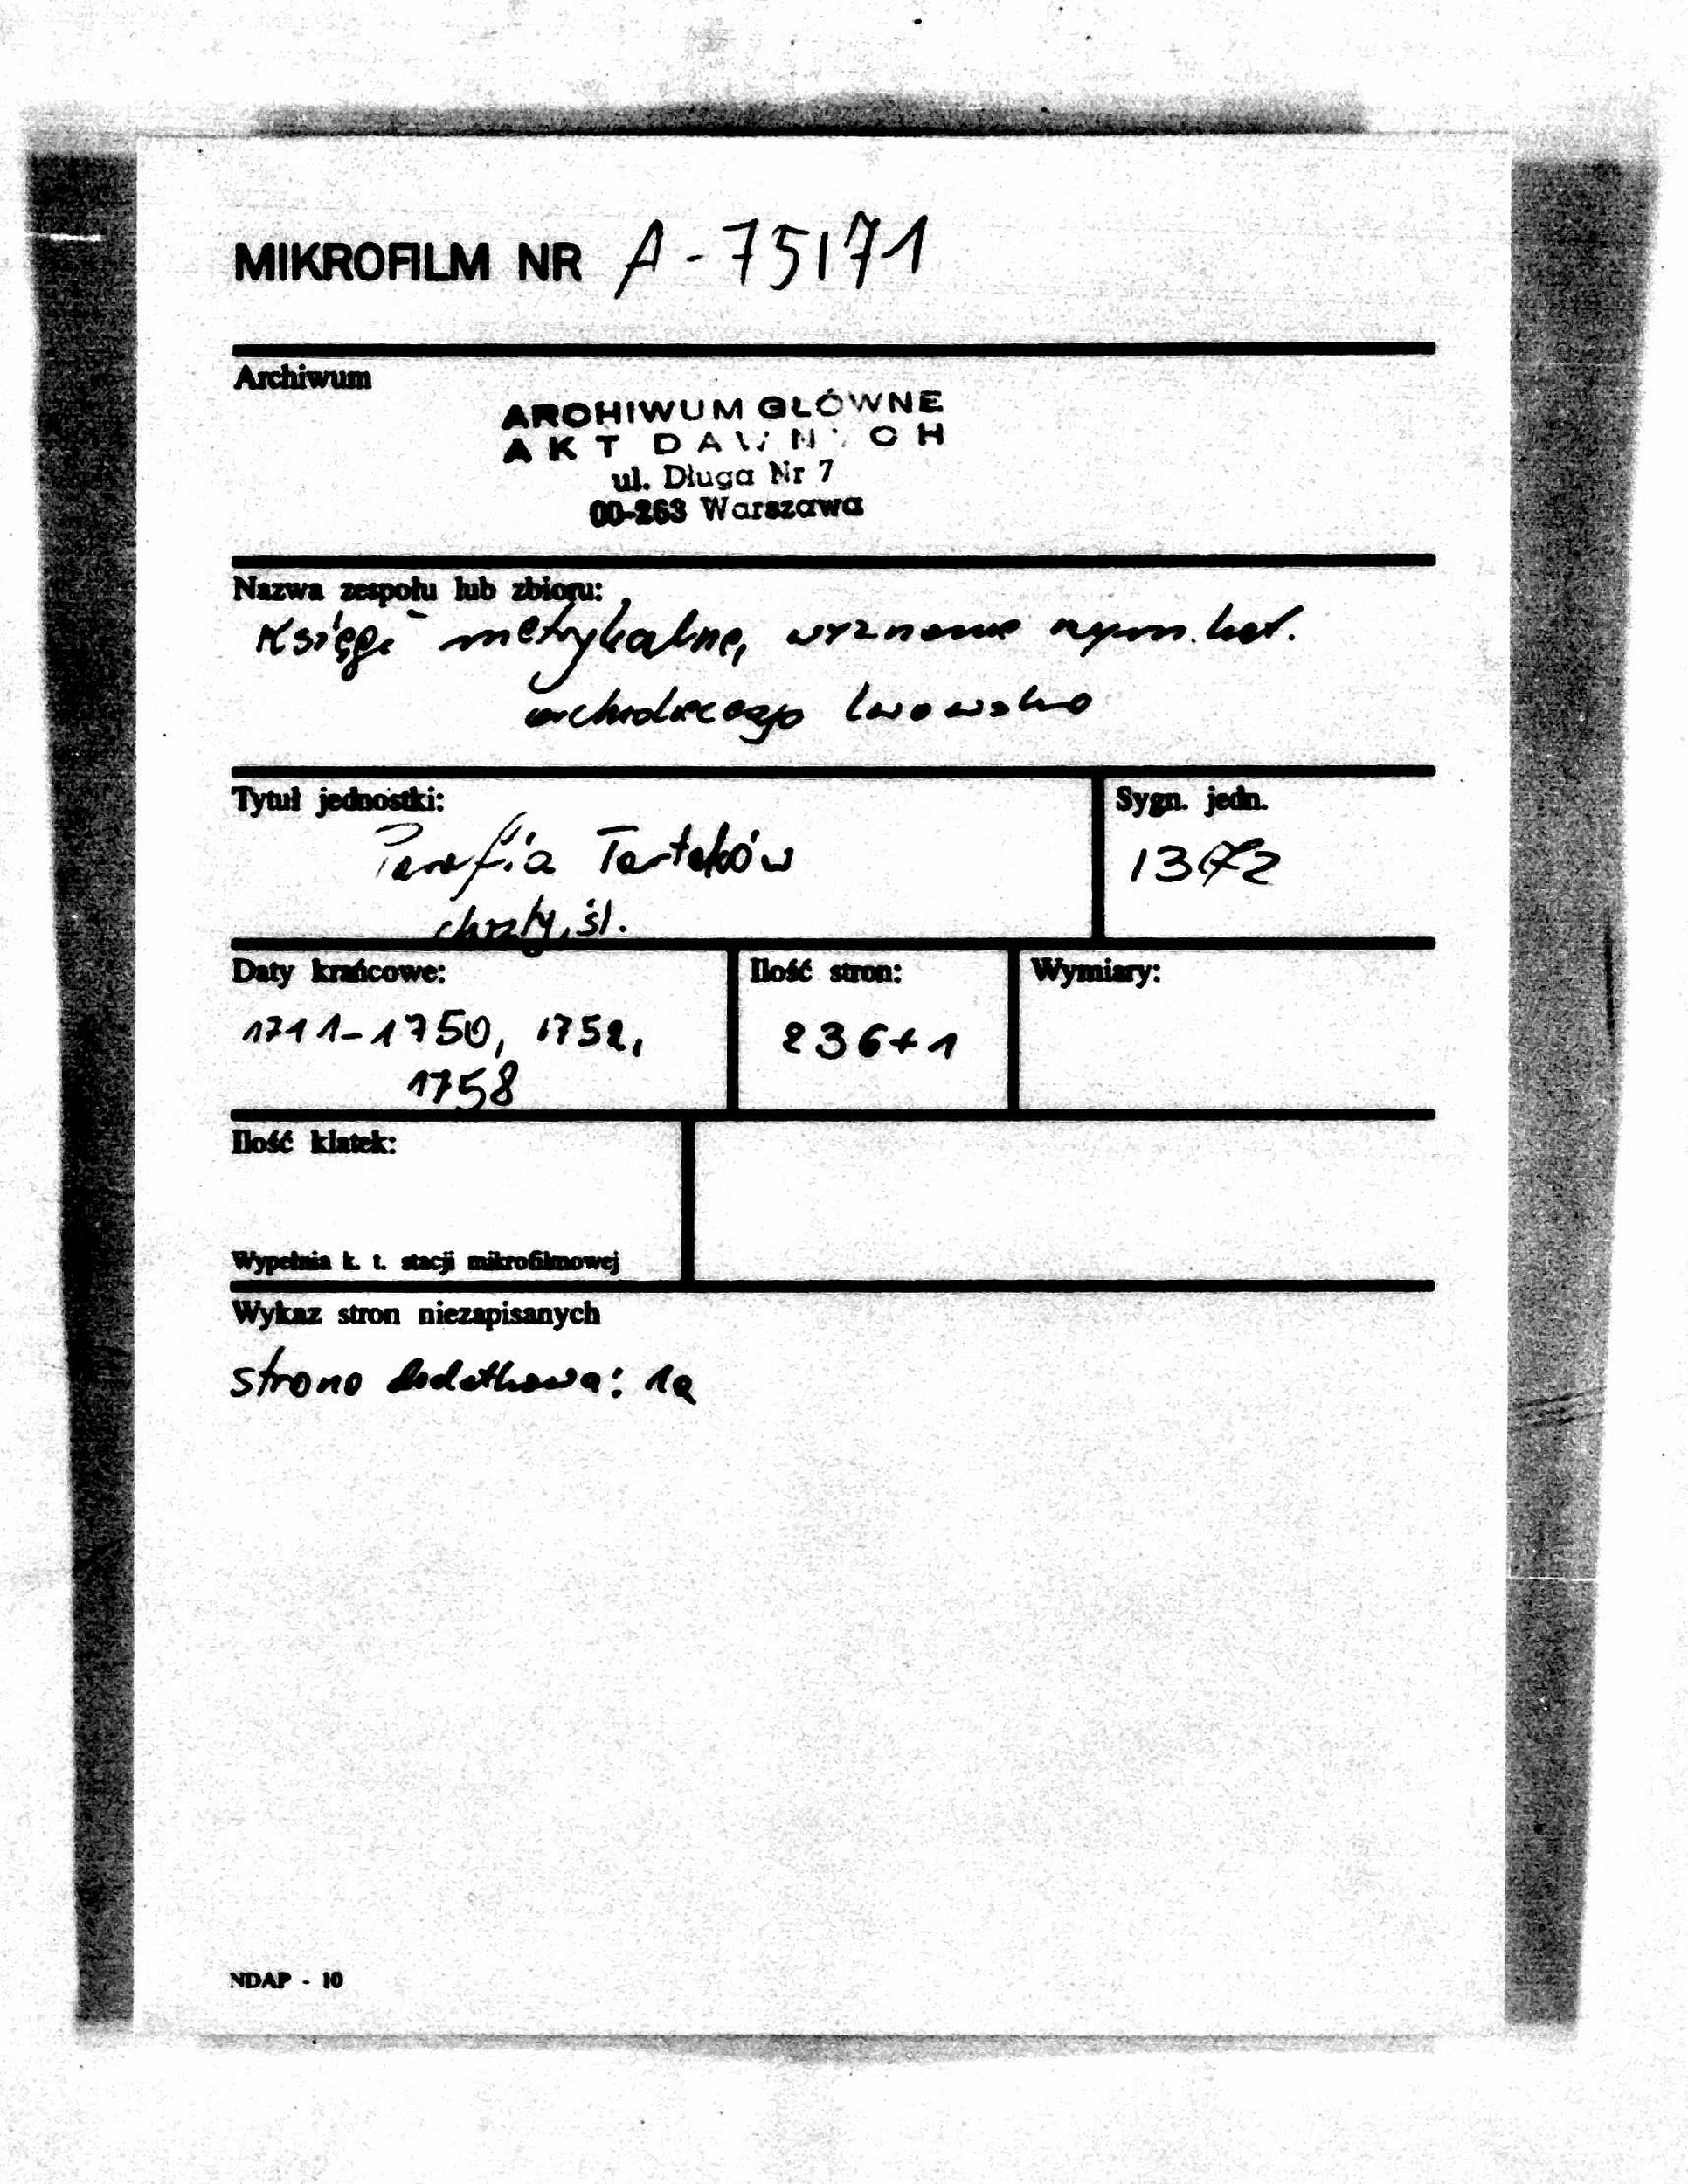 MIKROFILM NR A-75171
Archiwum
ARCHIWUM GŁÓWNE
AKT DAWNYCH
ul. Długa Nr 7
00-263 Warszawa
Nazwa zespołu lub zbioru:
Księgi metrykalne, wyznanie rzym. kat.
archidiecezja lwowska
Tytuł jednostki:
Parafia Tartaków
chrzty, śl.
Sygn. jedn.
1372
Daty krańcowe:
1711-1750, 1752,
1758
Ilość stron:
236+1
Wymiary:
Ilość klatek:
Wypełnia k. t. stacji mikrofilmowej
Wykaz stron niezapisanych
strona dodatkowa: 1a
NDAP - 10